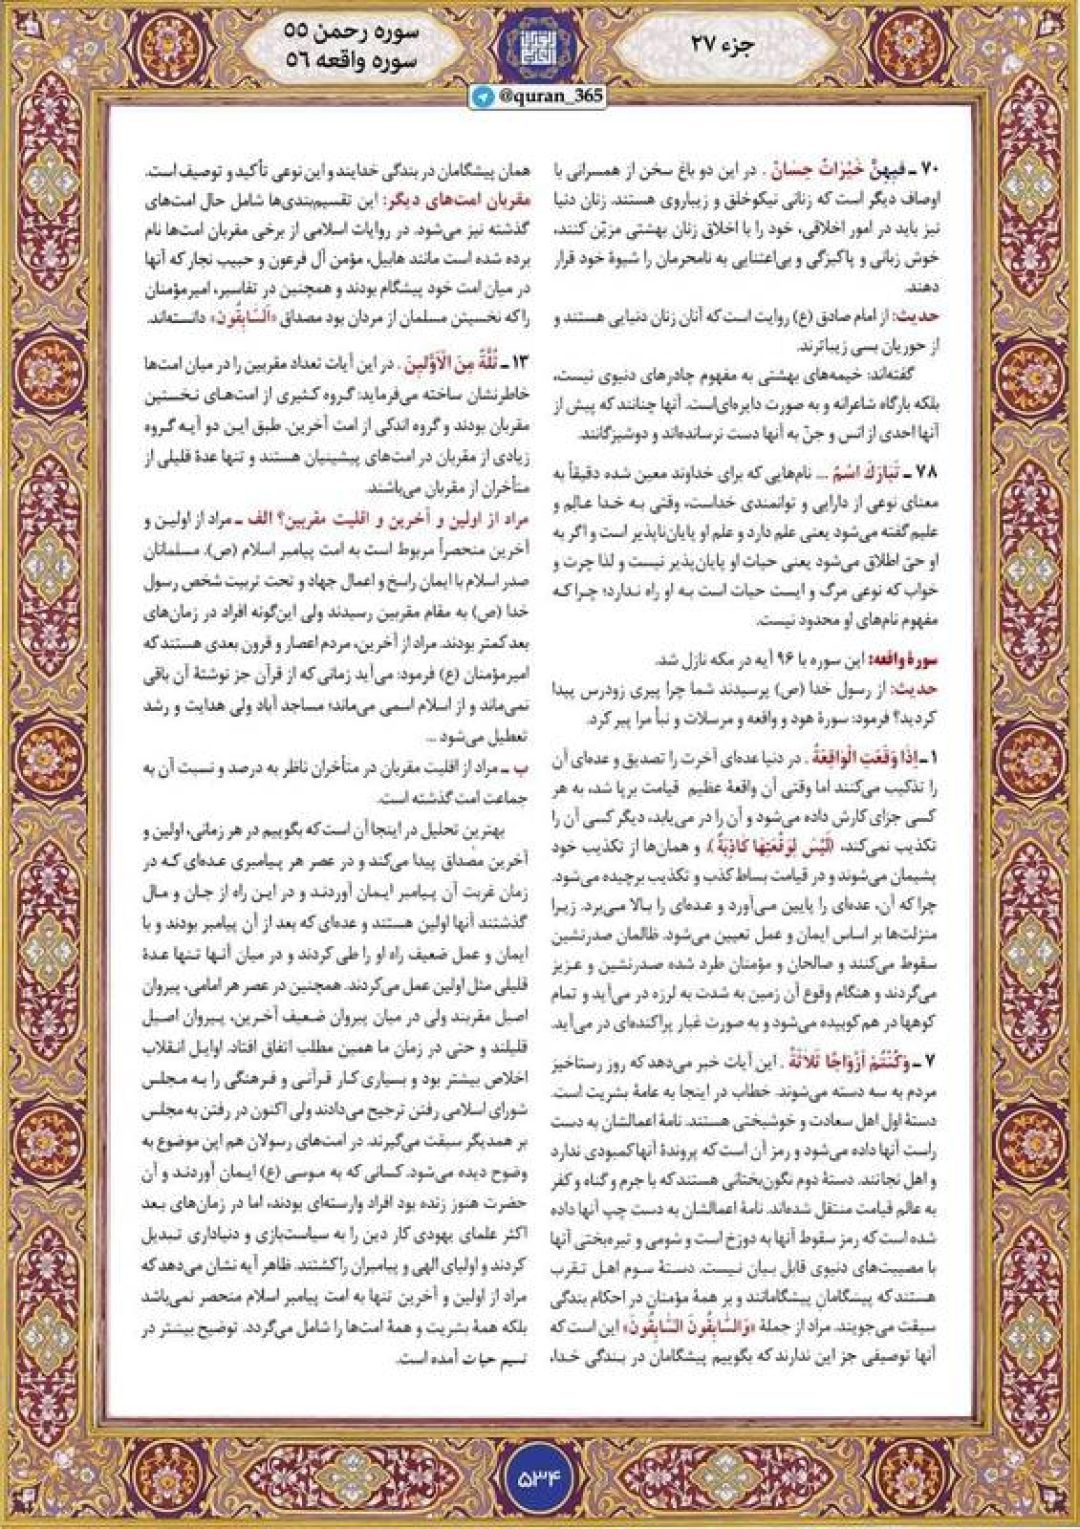 جزء ۲۷
سوره رحمن ۵۵
سوره واقعه ۵۶
@quran_365
۷۰ ـ فیهِنَّ خَیْرَاتٌ حِسَانٌ . در این دو باغ سخن از همسرانی با
اوصاف دیگر است که زنانی نیکوخلق و زیباروی هستند. زنان دنیا
نیز باید در امور اخلاقی، خود را با اخلاق زنان بهشتی مزیّن کنند،
خوش زبانی و پاکیزگی و بی‌اعتنایی به نامحرمان را شیوهٔ خود قرار
دهند.
حدیث: از امام صادق (ع) روایت است که آنان زنان دنیایی هستند و
از حوریان بسی زیباترند.
گفته‌اند: خیمه‌های بهشتی به مفهوم چادرهای دنیوی نیست،
بلکه بارگاه شاعرانه و به صورت دایره‌ای‌است. آنها چنانند که پیش از
آنها احدی از انس و جنّ به آنها دست نرسانده‌اند و دوشیزگانند.
۷۸ ـ تَبَارَكَ اسْمُ ... نام‌هایی که برای خداوند معین شده دقیقاً به
معنای نوعی از دارایی و توانمندی خداست، وقتی به خدا عالِم و
علیم گفته می‌شود یعنی علم دارد و علم او پایان‌ناپذیر است و اگر به
او حیّ اطلاق می‌شود یعنی حیات او پایان‌پذیر نیست و لذا چرت و
خواب که نوعی مرگ و ایست حیات است به او راه ندارد؛ چراکه
مفهوم نام‌های او محدود نیست.
سورهٔ واقعه: این سوره با ۹۶ آیه در مکه نازل شد.
حدیث: از رسول خدا (ص) پرسیدند شما چرا پیری زودرس پیدا
کردید؟ فرمود: سورهٔ هود و واقعه و مرسلات و نبأ مرا پیر کرد.
۱ ـ إِذَا وَقَعَتِ الْوَاقِعَةُ . در دنیا عده‌ای آخرت را تصدیق و عده‌ای آن
را تکذیب می‌کنند اما وقتی آن واقعهٔ عظیم قیامت برپا شد، به هر
کسی جزای کارش داده می‌شود و آن را در می‌یابد، دیگر کسی آن را
تکذیب نمی‌کند، (لَیْسَ لِوَقْعَتِهَا کَاذِبَةٌ)، و همان‌ها از تکذیب خود
پشیمان می‌شوند و در قیامت بساط کذب و تکذیب برچیده می‌شود.
چرا که آن، عده‌ای را پایین می‌آورد و عده‌ای را بالا می‌برد. زیرا
منزلت‌ها بر اساس ایمان و عمل تعیین می‌شود. ظالمان صدرنشین
سقوط می‌کنند و صالحان و مؤمنان طرد شده صدرنشین و عزیز
می‌گردند و هنگام وقوع آن زمین به شدت به لرزه در می‌آید و تمام
کوهها در هم کوبیده می‌شود و به صورت غبار پراکنده‌ای در می‌آید.
۷ ـ وَکُنْتُمْ أَزْوَاجًا ثَلَاثَةً . این آیات خبر می‌دهد که روز رستاخیز
مردم به سه دسته می‌شوند. خطاب در اینجا به عامهٔ بشریت است.
دستهٔ اول اهل سعادت و خوشبختی هستند. نامهٔ اعمالشان به دست
راست آنها داده می‌شود و رمز آن است که پروندهٔ آنها کمبودی ندارد
و اهل نجاتند. دستهٔ دوم نگون‌بختانی هستند که با جرم و گناه و کفر
به عالم قیامت منتقل شده‌اند. نامهٔ اعمالشان به دست چپ آنها داده
شده است که رمز سقوط آنها به دوزخ است و شومی و تیره‌بختی آنها
با مصیبت‌های دنیوی قابل بیان نیست. دستهٔ سوم اهل تقرب
هستند که پیشگامانِ پیشگامانند و بر همهٔ مؤمنان در احکام بندگی
سبقت می‌جویند. مراد از جملهٔ «وَالسَّابِقُونَ السَّابِقُونَ» این است که
آنها توصیفی جز این ندارند که بگوییم پیشگامان در بندگی خدا،
همان پیشگامان در بندگی خدایند و این نوعی تأکید و توصیف است.
مقربان امت‌های دیگر: این تقسیم‌بندی‌ها شامل حال امت‌های
گذشته نیز می‌شود. در روایات اسلامی از برخی مقربان امت‌ها نام
برده شده است مانند هابیل، مؤمن آل فرعون و حبیب نجار که آنها
در میان امت خود پیشگام بودند و همچنین در تفاسیر، امیرمؤمنان
را که نخستین مسلمان از مردان بود مصداق «اَلسَّابِقُونَ» دانسته‌اند.
۱۳ ـ ثُلَّةٌ مِنَ الْأَوَّلِینَ . در این آیات تعداد مقربین را در میان امت‌ها
خاطرنشان ساخته می‌فرماید: گروه کثیری از امت‌های نخستین
مقربان بودند و گروه اندکی از امت آخرین. طبق این دو آیه گروه
زیادی از مقربان در امت‌های پیشینیان هستند و تنها عدهٔ قلیلی از
متأخران از مقربان می‌باشند.
مراد از اولین و آخرین و اقلیت مقربین؟ الف ـ مراد از اولین و
آخرین منحصراً مربوط است به امت پیامبر اسلام (ص). مسلمانان
صدر اسلام با ایمان راسخ و اعمال جهاد و تحت تربیت شخص رسول
خدا (ص) به مقام مقربین رسیدند ولی این‌گونه افراد در زمان‌های
بعد کمتر بودند. مراد از آخرین، مردم اعصار و قرون بعدی هستند که
امیرمؤمنان (ع) فرمود: می‌آید زمانی که از قرآن جز نوشتهٔ آن باقی
نمی‌ماند و از اسلام اسمی می‌ماند؛ مساجد آباد ولی هدایت و رشد
تعطیل می‌شود ...
ب ـ مراد از اقلیت مقربان در متأخران ناظر به درصد و نسبت آن به
جماعت امت گذشته است.
بهترین تحلیل در اینجا آن است که بگوییم در هر زمانی، اولین و
آخرین مصداق پیدا می‌کند و در عصر هر پیامبری عده‌ای که در
زمان غربت آن پیامبر ایمان آوردند و در این راه از جان و مال
گذشتند آنها اولین هستند و عده‌ای که بعد از آن پیامبر بودند و با
ایمان و عمل ضعیف راه او را طی کردند و در میان آنها تنها عدهٔ
قلیلی مثل اولین عمل می‌کردند. همچنین در عصر هر امامی، پیروان
اصیل مقربند ولی در میان پیروان ضعیف آخرین، پیروان اصیل
قلیلند و حتی در زمان ما همین مطلب اتفاق افتاد. اوایل انقلاب
اخلاص بیشتر بود و بسیاری کار قرآنی و فرهنگی را به مجلس
شورای اسلامی رفتن ترجیح می‌دادند ولی اکنون در رفتن به مجلس
بر همدیگر سبقت می‌گیرند. در امت‌های رسولان هم این موضوع به
وضوح دیده می‌شود. کسانی که به موسی (ع) ایمان آوردند و آن
حضرت هنوز زنده بود افراد وارسته‌ای بودند، اما در زمان‌های بعد
اکثر علمای یهودی کار دین را به سیاست‌بازی و دنیاداری تبدیل
کردند و اولیای الهی و پیامبران را کشتند. ظاهر آیه نشان می‌دهد که
مراد از اولین و آخرین تنها به امت پیامبر اسلام منحصر نمی‌باشد
بلکه همهٔ بشریت و همهٔ امت‌ها را شامل می‌گردد. توضیح بیشتر در
نسیم حیات آمده است.
۵۳۴